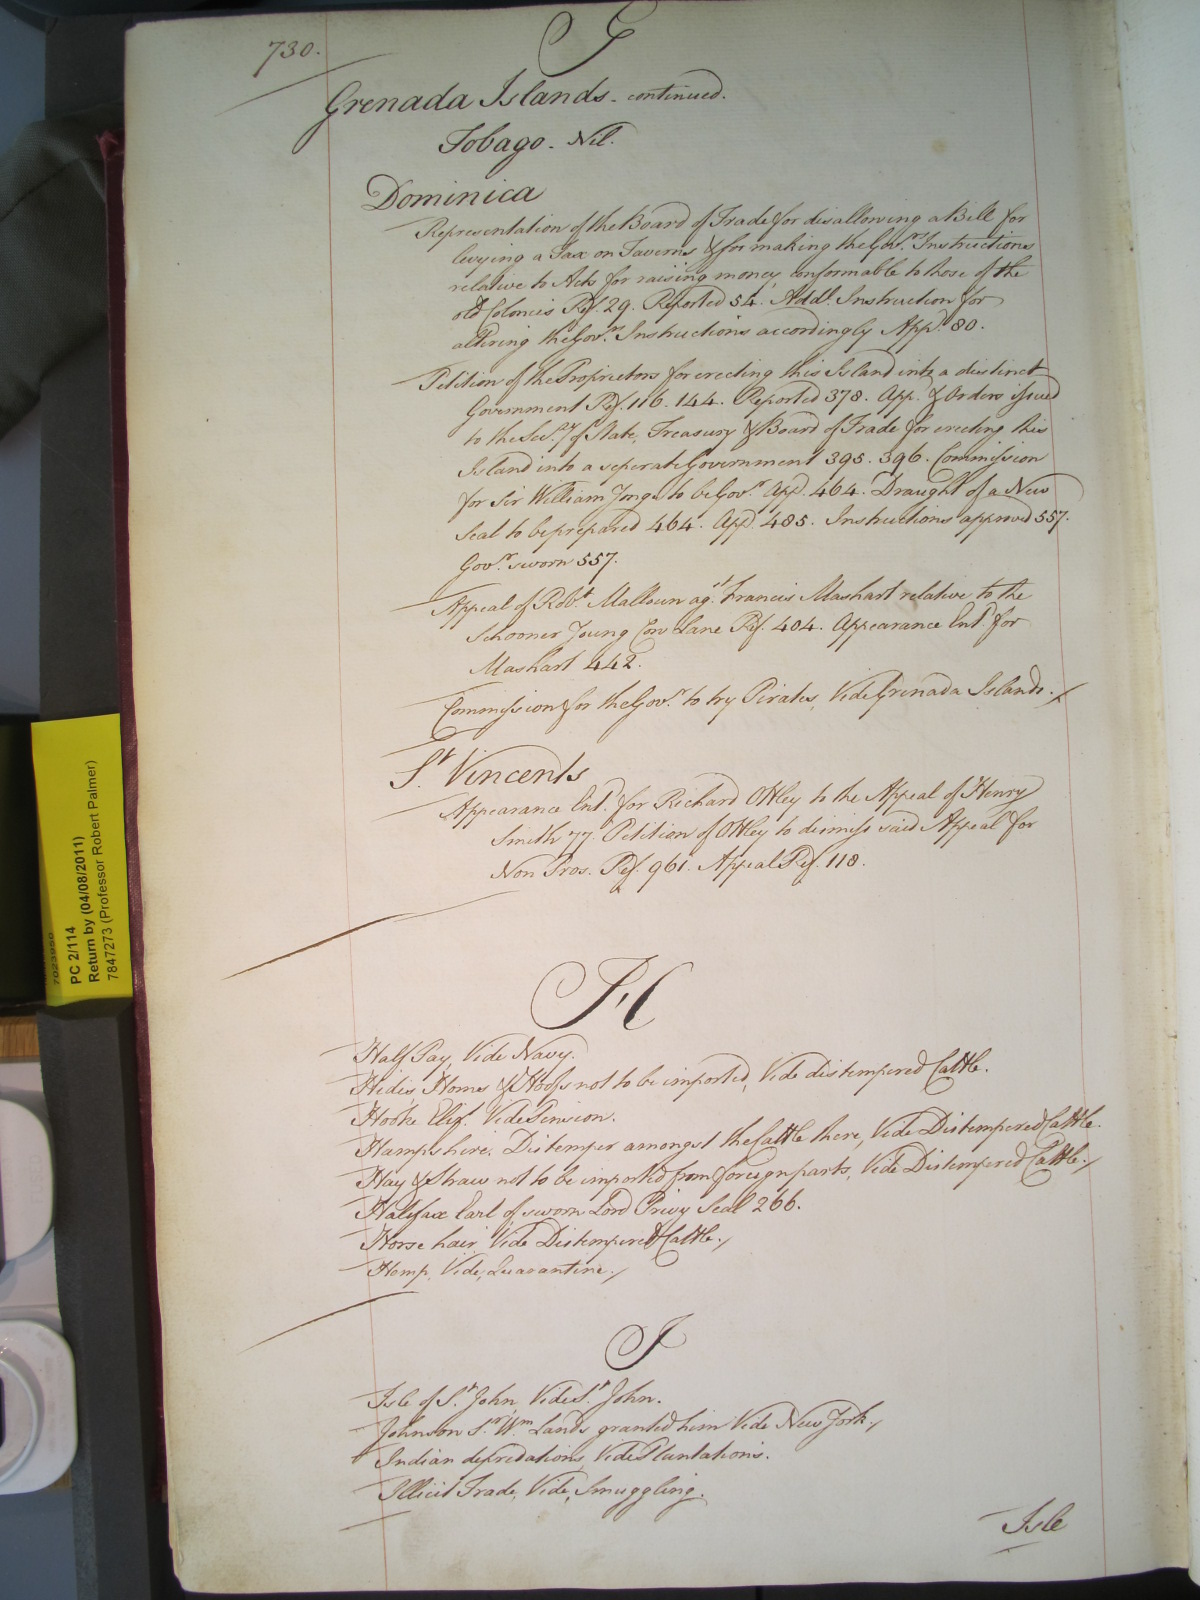 730.
G
Grenada Islands - continued.
Tobago - Nil.
Dominica
Representation of the Board of Trade for disallowing a Bill for
levying a Tax on Taverns & for making the Govr. Instructions
relative to Acts for raising money conformable to those of the
old Colonies Ref. 29. Reported 54. Addl. Instruction for
altering the Govrs. Instructions accordingly Appd. 80.
Petition of the Proprietors for erecting this Island into a distinct
Government Ref. 116. 144. Reported 378. App. & Orders issued
to the Secry. of State, Treasury & Board of Trade for erecting this
Island into a seperate Government 395. 396. Commission
for Sir William Yonge to be Govr. App. 464. Draught of a New
Seal to be prepared 464. App. 485. Instructions approved 557.
Govr. sworn 557.
Appeal of Robt. Malloun agt. Francis Mashart relative to the
Schooner Young Cow Lane Ref. 404. Appearance Entd. for
Mashart 442.
Commission for the Govr. to try Pirates, Vide Grenada Islands.
St. Vincents
Appearance Entd. for Richard Ottley to the Appeal of Henry
Smith 77. Petition of Ottley to dismiss said Appeal for
Non Pros. Ref. 961. Appeal Ref. 118.
H
Half Pay, Vide Navy.
Hides, Horns & Hoofs not to be imported, Vide distempered Cattle.
Hooke Eliz. Vide Pension.
Hampshire, Distemper amongst the Cattle there, Vide Distempered Cattle.
Hay & Straw not to be imported from foreign parts, Vide Distempered Cattle.
Halifax Earl of sworn Lord Privy Seal 266.
Horse hair, Vide Distempered Cattle.
Hemp, Vide, Quarantine.
I
Isle of St. John, Vide St. John.
Johnson Sr. Wm. Lands granted him Vide New York.
Indian depredations, Vide Plantations.
Illicit Trade, Vide, Smuggling.
Isle
7023950
PC 2/114
Return by (04/08/2011)
7847273 (Professor Robert Palmer)